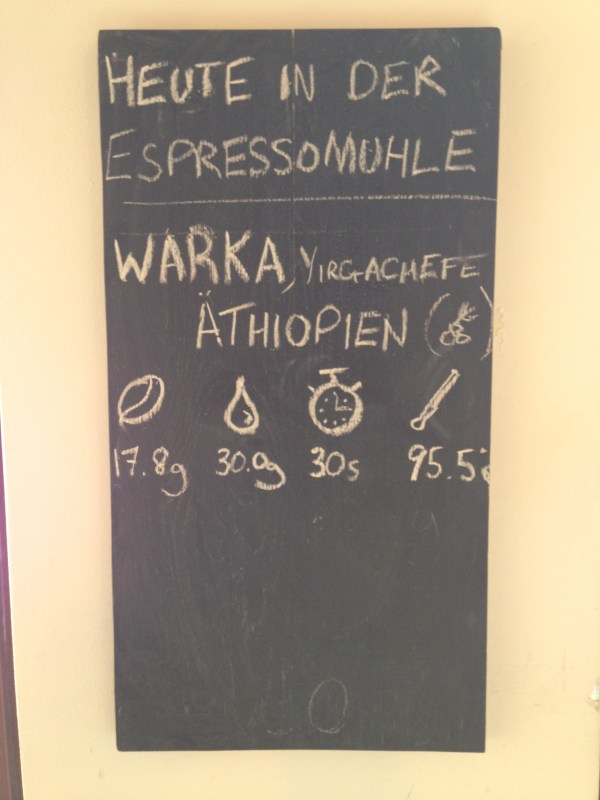 HEUTE IN DER
ESPRESSOMUHLE
WARKA, YIRGACHEFE
ÄTHIOPIEN ( )
17.8g 30.0g 30s 95.5°C